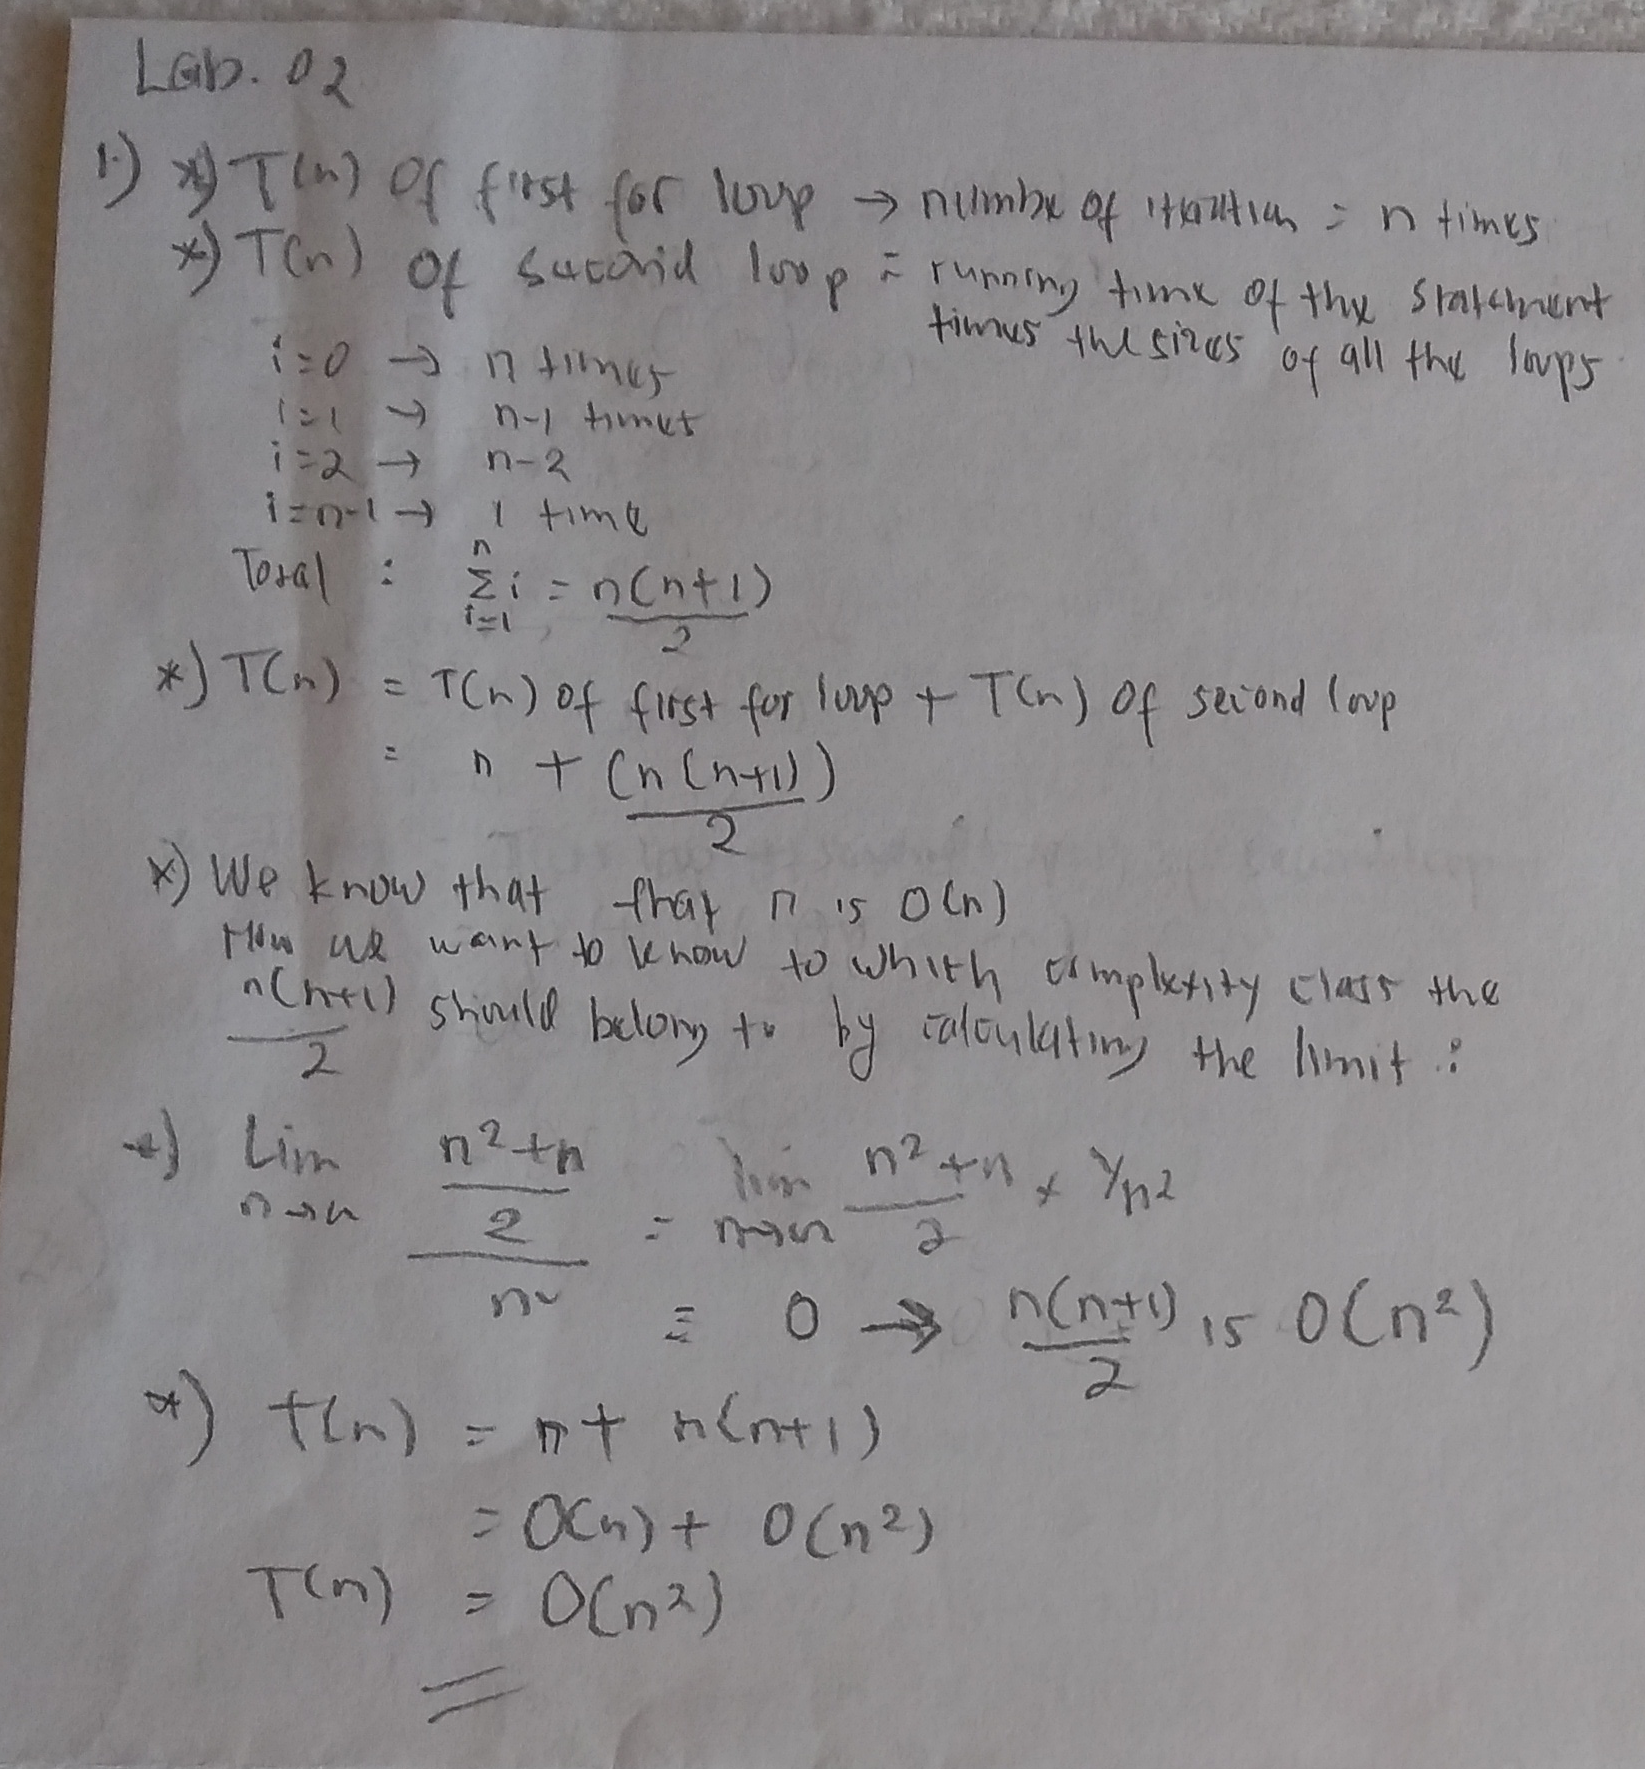 Lab. 02
1.) *) T(n) of first for loop → numbe of iteration = n times
*) T(n) of second loop = running time of the statement
times the sizes of all the loops
i=0 → n times
i=1 → n-1 times
i=2 → n-2
i=n-1 → 1 time
Total : n Σ i=1 i = n(n+1) / 2
*) T(n) = T(n) of first for loop + T(n) of second loop
= n + (n(n+1)) / 2
*) We know that that n is O(n)
we want to know to which complexity class the
n(n+1) / 2 should belong to by calculating the limit :
*) Lim n→∞ n²+n / 2 / n² = lim n→∞ n²+n / 2 × 1/n2
= 0 → n(n+1) / 2 is O(n²)
*) T(n) = n + n(n+1)
= O(n) + O(n²)
T(n) = O(n²)